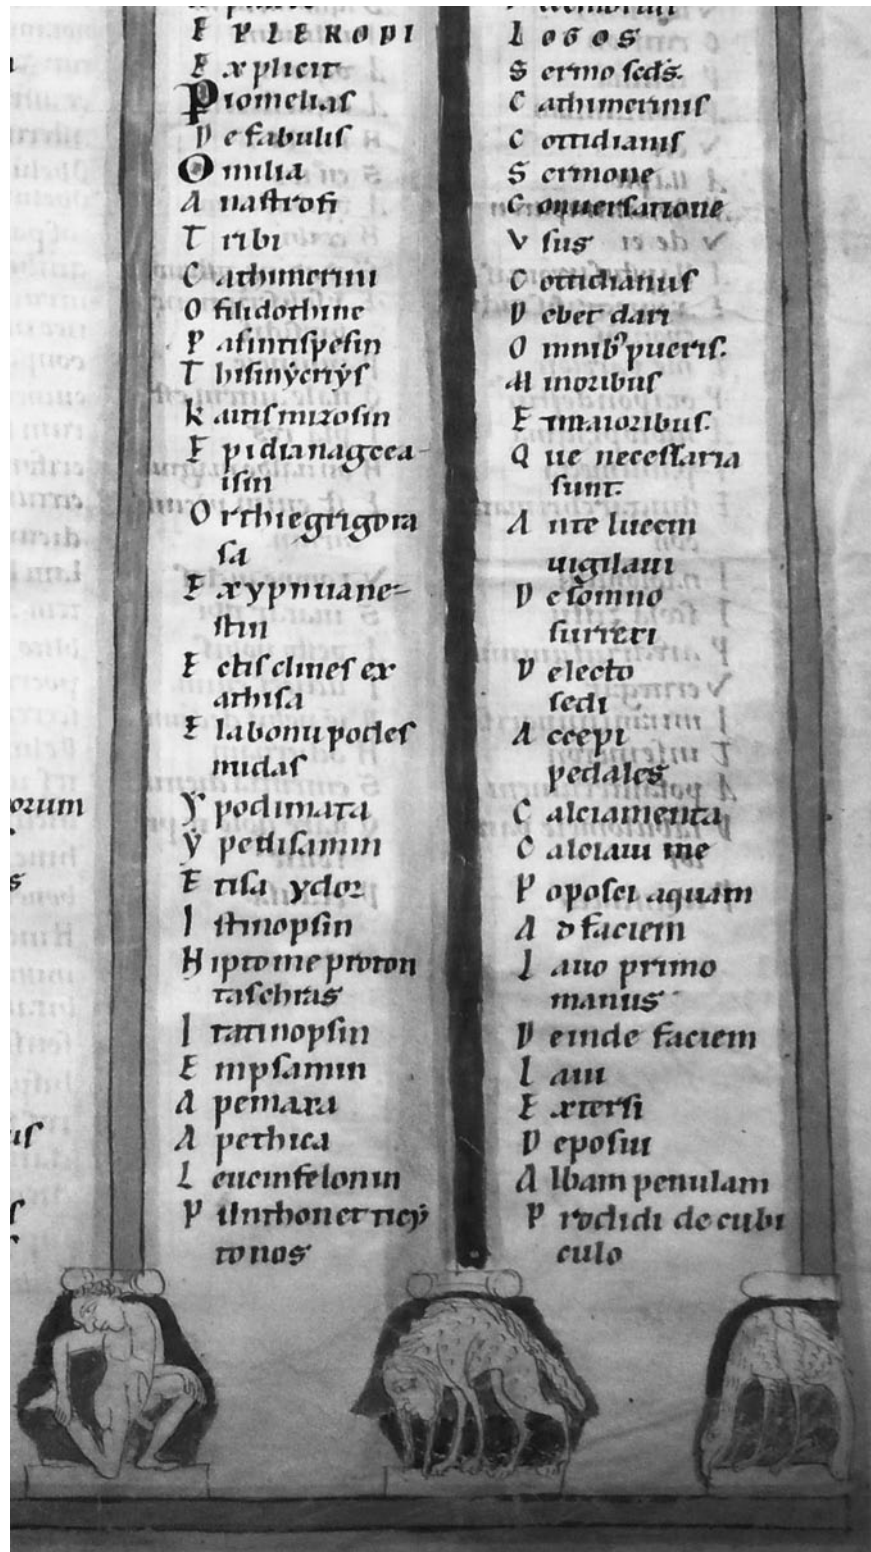 E PLEROPI
E xplicit
P romelias
D e fabulis
O milia
A nastrofi
T ribi
C athimerini
O filidothine
P asintispesin
T hisinẏcriẏs
K aitismizosin
E pidianagcea
isin
O rthiegrigora
sa
E xypnuane-
stin
E ctisclinesex
athisa
E labonupodes
nidas
Ẏ podimata
ẏ pedisamin
E tisa ydor
I stinopsin
H iptomeproton
taschras
I tatinopsin
E nipsamin
A pemaxa
A pethica
L eucinfelonin
P ilnthonetticẏ
tonos
L OGOS
S ermo scds.
C athimerinus
C ottidianis
S ermone
C onuersatione
V sus
C ottidianus
D eber dari
O mnibꝰpueris.
M inoribus
E tmaioribus.
Q ue necessaria
sunt.
A nte lucem
uigilaui
D esomno
surrexi
D electo
sedi
A ccepi
pedales
C alciamenta
C alciaui me
P oposci aquam
A dfaciem
L auo primo
manus
D einde faciem
L aui
E xtersi
D eposui
A lbampenulam
P rodidi decubi
culo
orum